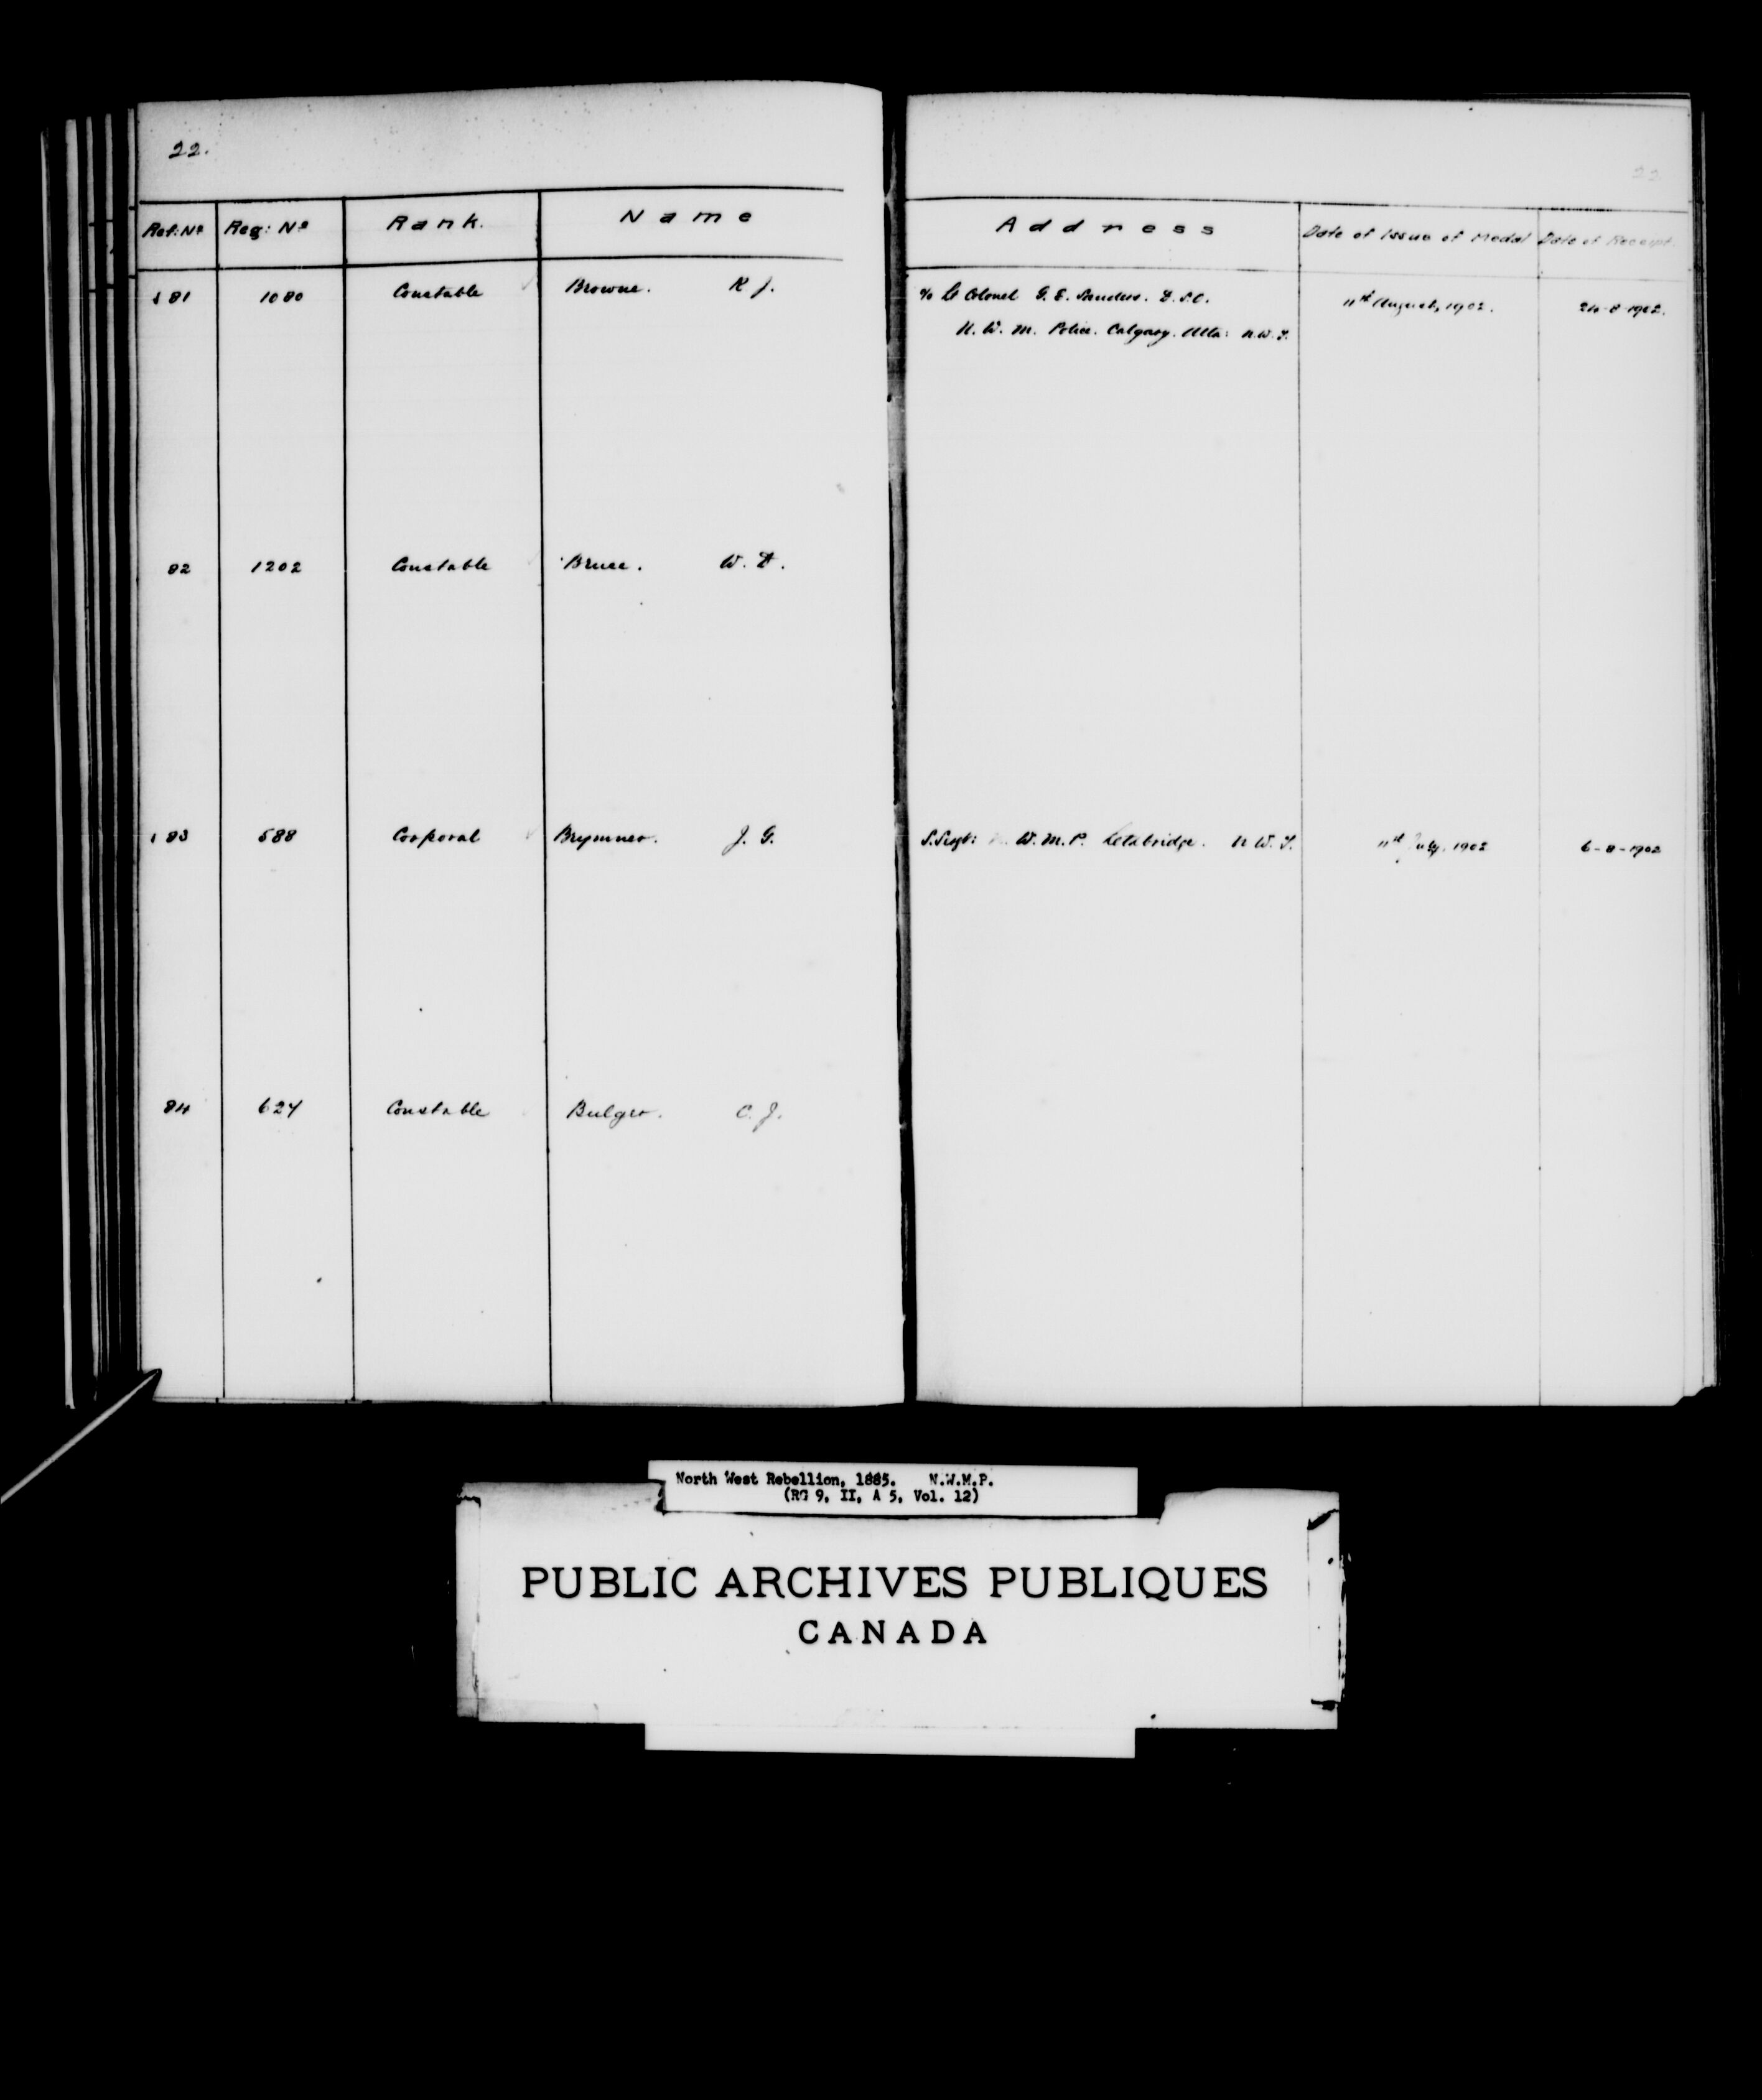 22.
22
Ref: Nº Reg: Nº Rank. Name Address Date of Issue of Medal Date of Receipt.
81 1080 Constable Browne. R J. c/o Lt Colonel G. E. Sanders. D.S.O. 11th August, 1902. 24-8-1902.
N. W. M. Police. Calgary. Alta: N.W.T.
82 1202 Constable Bruce. W. D.
83 588 Corporal Brymner. J. G. S.Sergt: N. W. M. P. Lethbridge. N W. T. 11th July, 1902 6-8-1902
84 624 Constable Bulger. C. J.
North West Rebellion, 1885. N.W.M.P.
(RG 9, II, A 5, Vol. 12)
PUBLIC ARCHIVES PUBLIQUES
CANADA